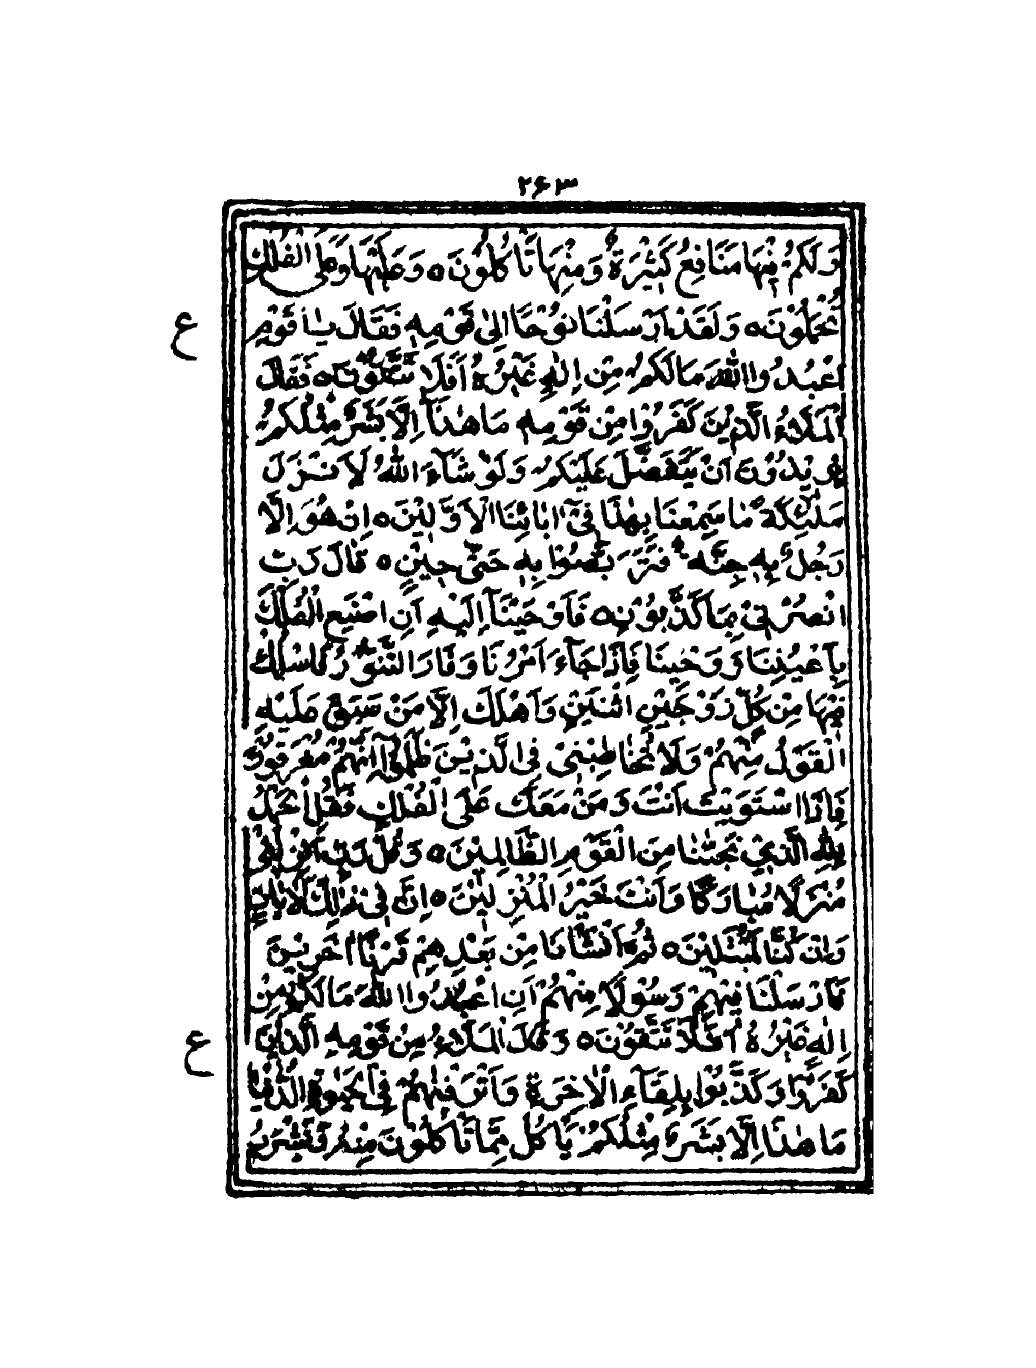 ۲۶۳
وَلَكُمْ فِيْهَا مَنَافِعُ كَثِيْرَةٌ وَّمِنْهَا تَاْكُلُوْنَ ٥ وَعَلَيْهَا وَعَلَى الْفُلْكِ
تُحْمَلُوْنَ ٥ وَلَقَدْ اَرْسَلْنَا نُوْحًا اِلٰى قَوْمِهٖ فَقَالَ يٰا قَوْمِ
ع
اعْبُدُوا اللّٰهَ مَا لَكُمْ مِّنْ اِلٰهٍ غَيْرُهٗ اَفَلَا تَتَّقُوْنَ ٥ فَقَالَ
الْمَلَاءُ الَّذِيْنَ كَفَرُوْا مِنْ قَوْمِهٖ مَا هٰذَآ اِلَّا بَشَرٌ مِّثْلُكُمْ
يُرِيْدُوْنَ اَنْ يَّتَفَضَّلَ عَلَيْكُمْ وَلَوْ شَآءَ اللّٰهُ لَاَنْزَلَ
مَلٰٓئِكَةً مَّا سَمِعْنَا بِهٰذَا فِىْٓ اٰبَائِنَا الْاَوَّلِيْنَ ٥ اِنْ هُوَ اِلَّا
رَجُلٌ بِهٖ جِنَّةٌ فَتَرَبَّصُوْا بِهٖ حَتّٰى حِيْنٍ ٥ قَالَ رَبِّ
انْصُرْنِىْ بِمَا كَذَّبُوْنِ ٥ فَاَوْحَيْنَآ اِلَيْهِ اَنِ اصْنَعِ الْفُلْكَ
بِاَعْيُنِنَا وَوَحْيِنَا فَاِذَا جَآءَ اَمْرُنَا وَفَارَ التَّنُّوْرُ فَاسْلُكْ
فِيْهَا مِنْ كُلٍّ زَوْجَيْنِ اثْنَيْنِ وَاَهْلَكَ اِلَّا مَنْ سَبَقَ عَلَيْهِ
الْقَوْلُ مِنْهُمْ وَلَا تُخَاطِبْنِىْ فِى الَّذِيْنَ ظَلَمُوْٓا اِنَّهُمْ مُّغْرَقُوْنَ
فَاِذَا اسْتَوَيْتَ اَنْتَ وَمَنْ مَّعَكَ عَلَى الْفُلْكِ فَقُلِ الْحَمْدُ
لِلّٰهِ الَّذِىْ نَجّٰىنَا مِنَ الْقَوْمِ الظَّالِمِيْنَ ٥ وَقُلْ رَّبِّ اَنْزِلْنِىْ
مُنْزَلًا مُّبٰرَكًا وَّاَنْتَ خَيْرُ الْمُنْزِلِيْنَ ٥ اِنَّ فِىْ ذٰلِكَ لَاٰيٰتٍ
وَّاِنْ كُنَّا لَمُبْتَلِيْنَ ٥ ثُمَّ اَنْشَاْنَا مِنْ بَعْدِهِمْ قَرْنًا اٰخَرِيْنَ
فَاَرْسَلْنَا فِيْهِمْ رَسُوْلًا مِّنْهُمْ اَنِ اعْبُدُوا اللّٰهَ مَا لَكُمْ مِّنْ
اِلٰهٍ غَيْرُهٗ اَفَلَا تَتَّقُوْنَ ٥ وَقَالَ الْمَلَاءُ مِنْ قَوْمِهِ الَّذِيْنَ
ع
كَفَرُوْا وَكَذَّبُوْا بِلِقَآءِ الْاٰخِرَةِ وَاَتْرَفْنٰهُمْ فِى الْحَيٰوةِ الدُّنْيَا
مَا هٰذَا اِلَّا بَشَرٌ مِّثْلُكُمْ يَاْكُلُ مِمَّا تَاْكُلُوْنَ مِنْهُ وَيَشْرَبُ